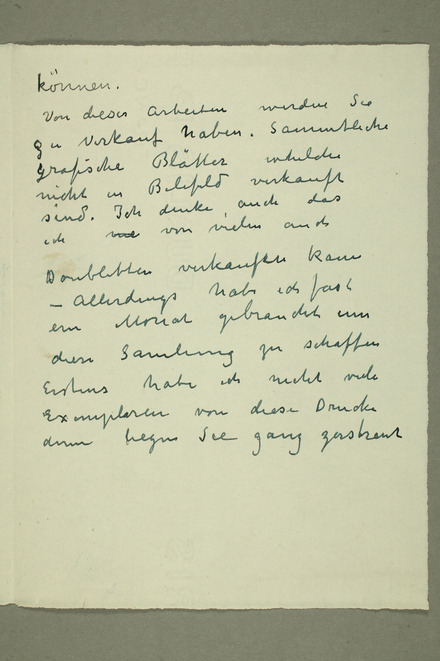 können.
Von dieser arbeiten werden Sie
zu Verkauf haben. Sammtliche
grafische Blätter whelche
nicht in Belefeld verkauft
sind. Ich denke auch das
ich von vielen auch
Doubletten verkaufen kann
– Allerdings habe ich fast
ein Monat gebraucht um
diese Samlung zu schaffen
Erstens habe ich nicht viele
Exemplaren von diese Drucke
dann liegen Sie ganz zerstreut